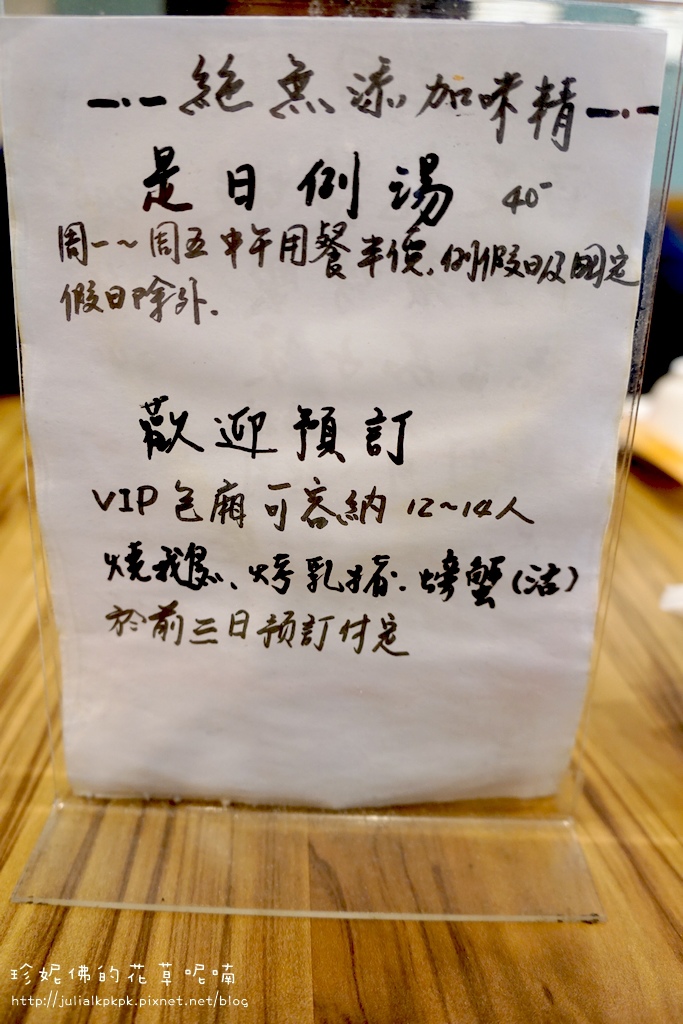 —·— 絕無添加味精 —·—
是日例湯 40-
周一~周五中午用餐半價.例假日及國定
假日除外.
歡迎預訂
VIP包廂可容納 12~14人
燒鵝、烤乳豬.螃蟹(活)
於前三日預訂付定
珍妮佛的花草呢喃
http://julialkpkpk.pixnet.net/blog